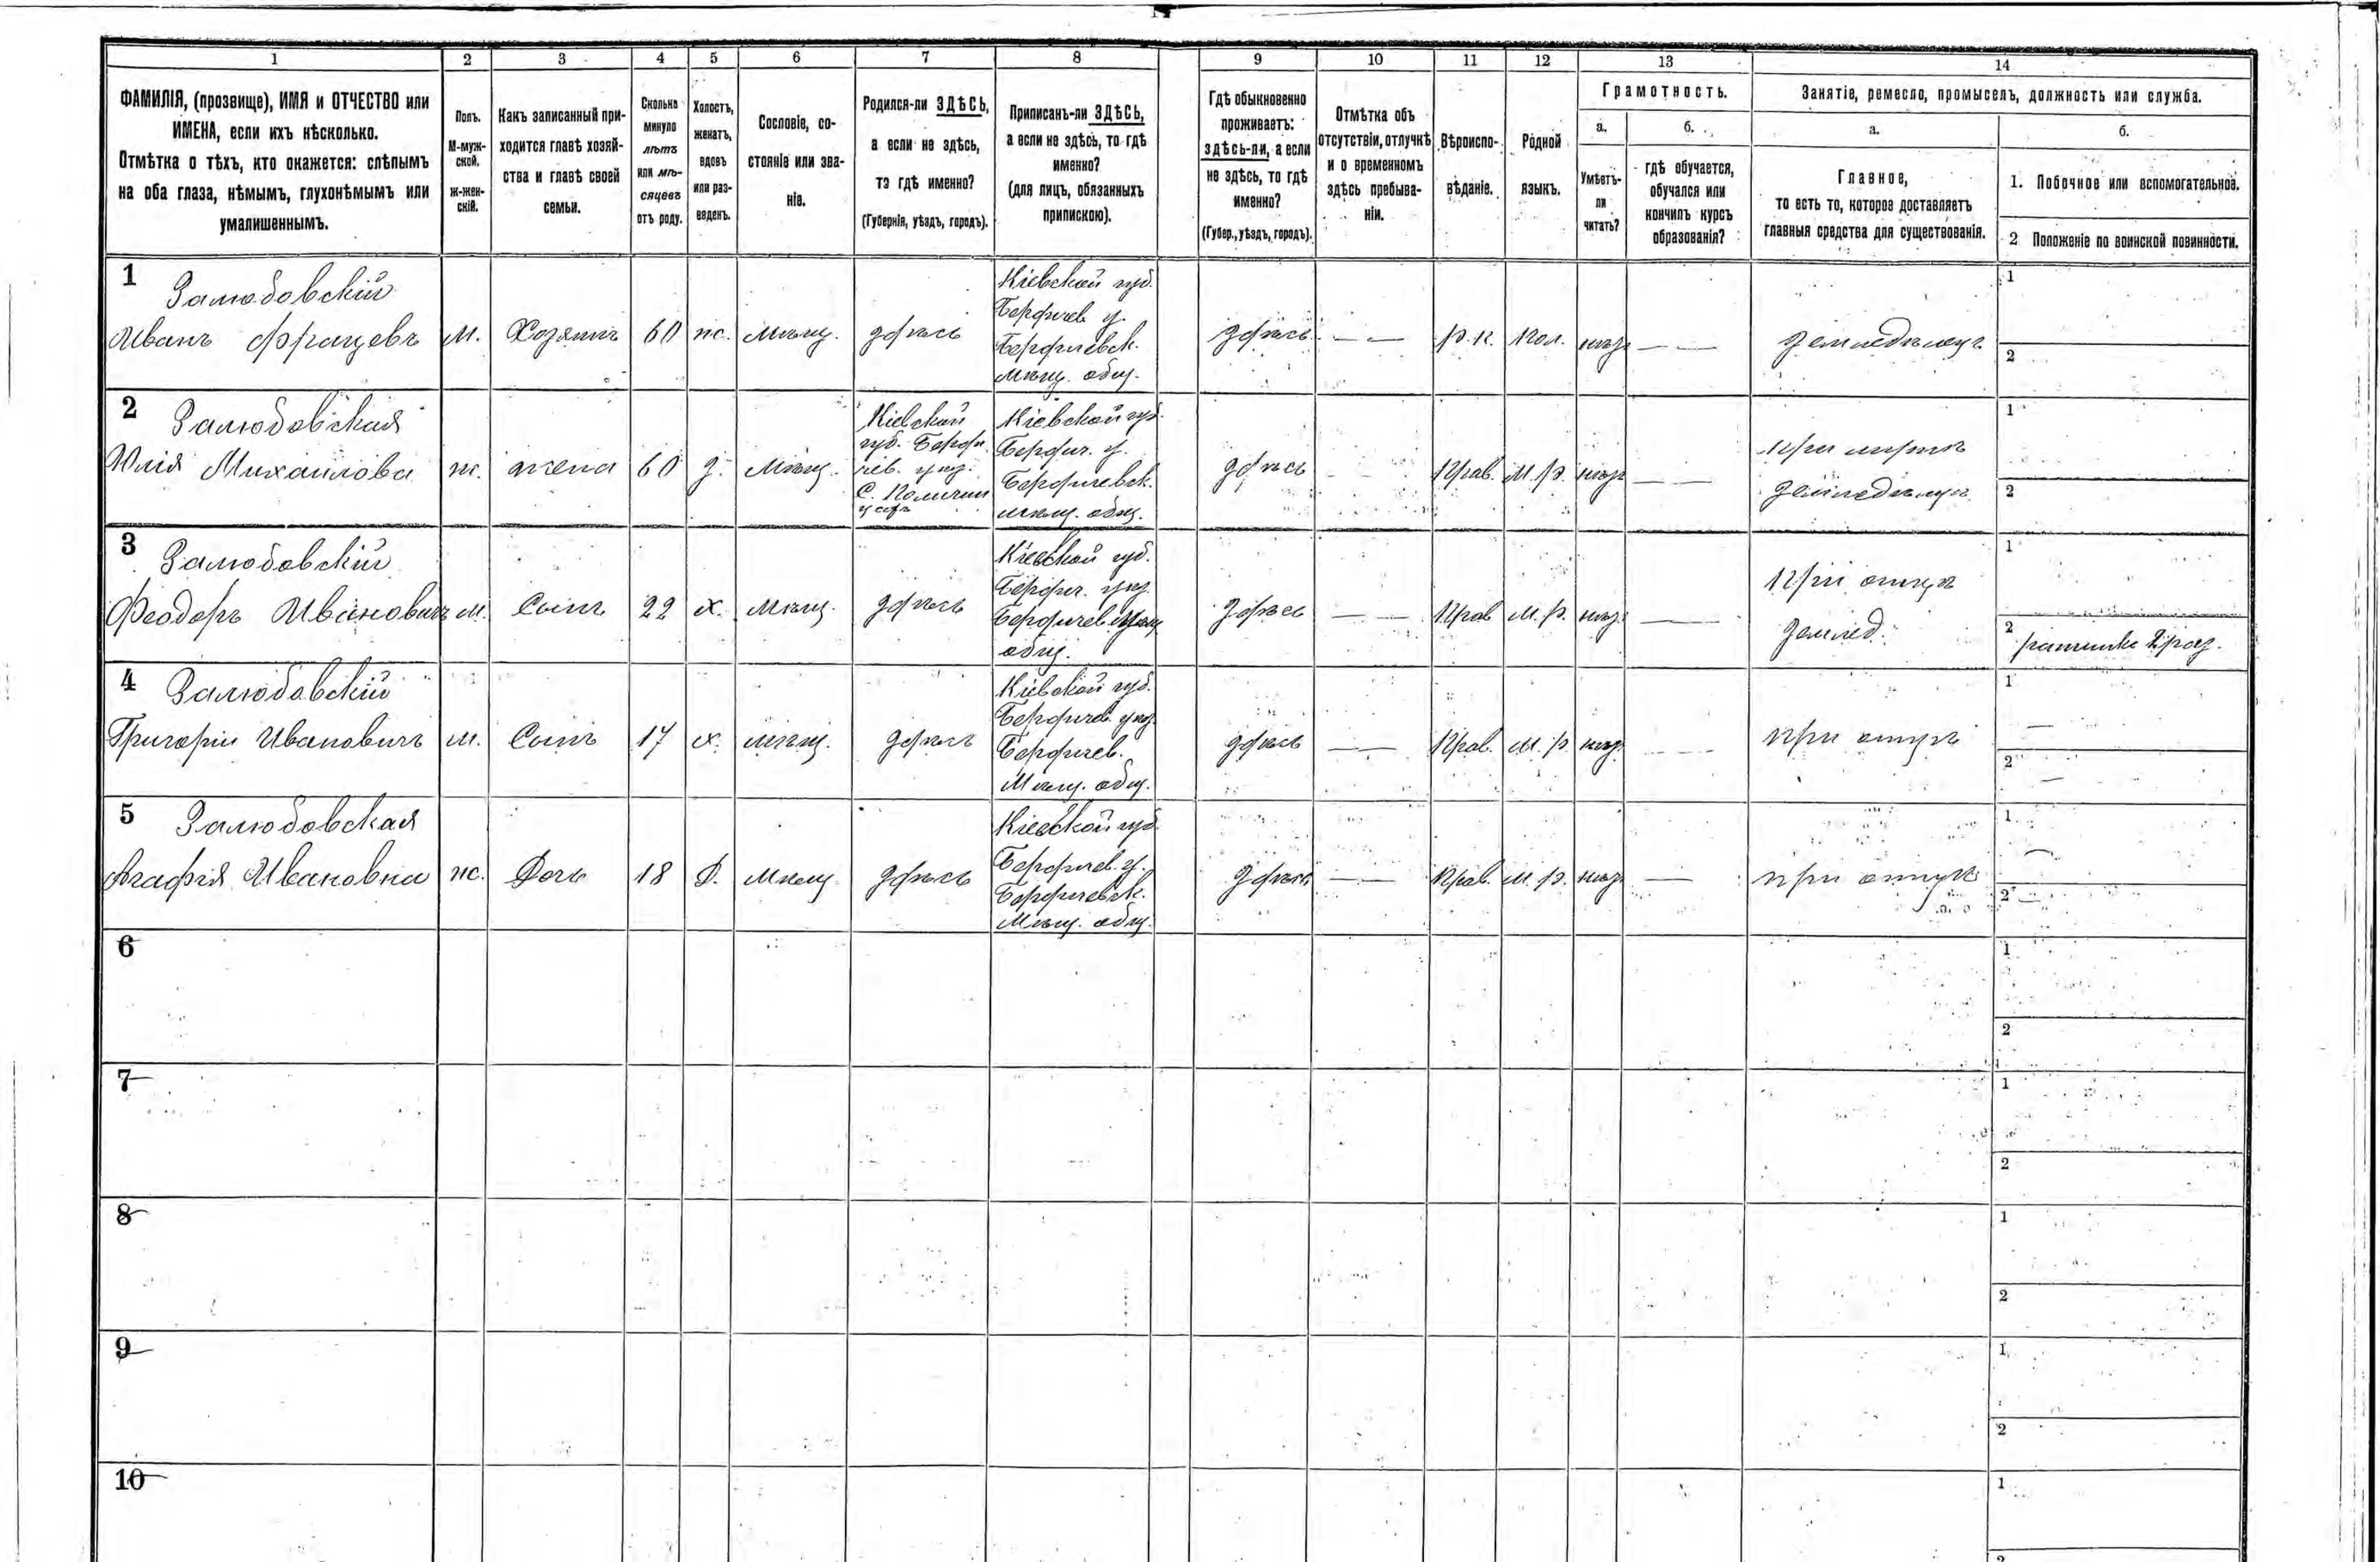 1 2 3 4 5 6 7 8 9 10 11 12 13 14
ФАМИЛІЯ, (прозвище), ИМЯ и ОТЧЕСТВО или
ИМЕНА, если ихъ нѣсколько.
Отмѣтка о тѣхъ, кто окажется: слѣпымъ
на оба глаза, нѣмымъ, глухонѣмымъ или
умалишеннымъ.
Полъ.
М-муж-
ской.
ж-жен-
скій.
Какъ записанный при-
ходится главѣ хозяй-
ства и главѣ своей
семьи.
Сколько
минуло
лѣтъ
или мѣ-
сяцевъ
отъ роду.
Холостъ,
женатъ,
вдовъ
или раз-
веденъ.
Сословіе, со-
стояніе или зва-
ніе.
Родился-ли ЗДѢСЬ,
а если не здѣсь,
то гдѣ именно?
(Губернія, уѣздъ, городъ).
Приписанъ-ли ЗДѢСЬ,
а если не здѣсь, то гдѣ
именно?
(для лицъ, обязанныхъ
припискою).
Гдѣ обыкновенно
проживаетъ:
здѣсь-ли, а если
не здѣсь, то гдѣ
именно?
(Губер., уѣздъ, городъ).
Отмѣтка объ
отсутствіи, отлучкѣ
и о временномъ
здѣсь пребыва-
ніи.
Вѣроиспо-
вѣданіе.
Родной
языкъ.
Грамотность.
а.
Умѣетъ-
ли
читать?
б.
гдѣ обучается,
обучался или
кончилъ курсъ
образованія?
Занятіе, ремесло, промыселъ, должность или служба.
а.
Главное,
то есть то, которое доставляетъ
главныя средства для существованія.
б.
1. Побочное или вспомогательное.
2 Положеніе по воинской повинности.
1
Залюбовскій
Иванъ Францевъ
М.
Хозяинъ
60
ж.
Мѣщ.
здѣсь
Кіевской губ.
Бердичев у.
Бердичевск.
Мѣщ. общ.
здѣсь
— —
р. к.
пол.
нѣт
— —
земледѣлецъ
1
2
2
Залюбовская
Юлія Михаилова
ж.
жена
60
з.
Мѣщ.
Кіевской
губ. Берди
чев. уѣз.
Кіевской губ.
Бердич. у.
Бердичевск.
мѣщ. общ.
здѣсь
Прав.
м. р.
нѣт
— —
При мужѣ
земледѣлецъ
1
2
3
Залюбовскій
Феодоръ Ивановичъ
м.
Сынъ
22
х.
Мѣщ.
здѣсь
Кіевской губ.
Бердич. уѣз.
Бердичев. Мѣщ
общ.
здѣсь
— —
Прав
м. р.
нѣт
—
При отцѣ
землед.
1
2
ратникъ 2 раз.
4
Залюбовскій
Григорій Ивановичъ
м.
Сынъ
17
х.
мѣщ.
здѣсь
Кіевской губ.
Бердичев. уѣз.
Бердичев.
Мѣщ. общ.
здѣсь
— —
Прав.
м. р.
нѣт
— —
при отцѣ
1
—
2
—
5
Залюбовская
Агафія Ивановна
ж.
Дочь
18
д.
Мѣщ
здѣсь
Кіевской губ
Бердичев. у.
Бердичевск.
Мѣщ. общ.
здѣсь
— —
Прав.
м. р.
нѣт
—
при отцѣ
1
—
2
—
6
1
2
7
1
2
8
1
2
9
1
2
10
1
2